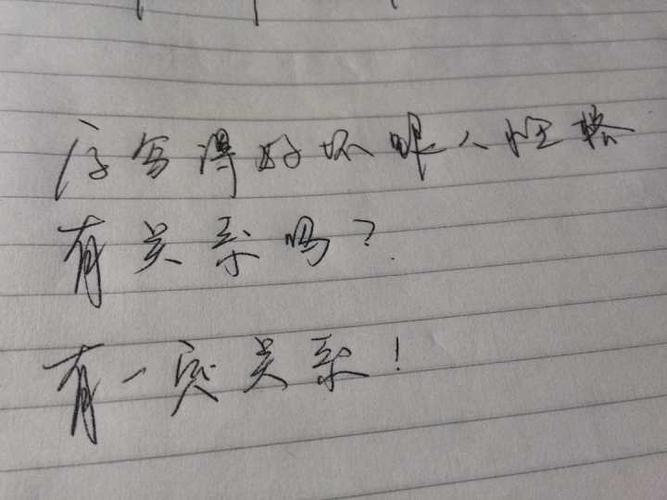 字写得好坏跟人性格
有关系吗？
有一定关系！